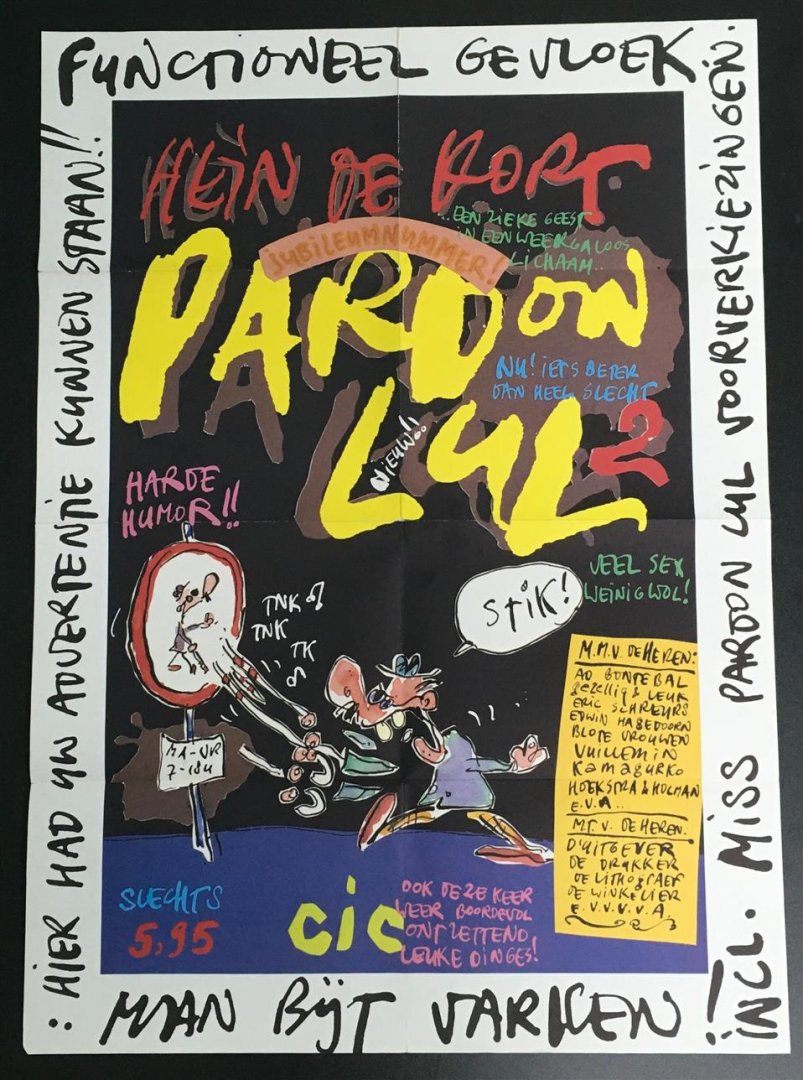 FUNCTIONEEL GEVLOEK.
: HIER HAD UW ADVERTENTIE KUNNEN STAAN!!
HEIN DE KORT.
..EEN ZIEKE GEEST
IN EEN WEERGALOOS
LICHAAM..
JUBILEUMNUMMER!
PARDON
NU! IETS BETER
DAN HEEL SLECHT
NIEUW!!
LUL 2
HARDE
HUMOR!!
VEEL SEX
WEINIG WOL!
STIK!
TNK
TNK
TK
MA-VR
7-18U
M.M.V. DE HEREN:
AD BONTEBAL
GEZELLIG & LEUK
ERIC SCHREURS
EDWIN HAGEDOORN
BLOTE VROUWEN
VUILLEMIN
KAMAGURKO
HOEKSTRA & HOLMAN
E.V.A..
M.T.V. DE HEREN:
D'UITGEVER
DE DRUKKER
DE LITHOGRAEF
DE WINKELIER
E.V.V.V.V.A.
SLECHTS
5,95
cic
OOK DEZE KEER
WEER BOORDEVOL
ONTZETTEND
LEUKE DINGES!
MAN BIJT VARKEN!
INCL. MISS PARDON LUL VOORVERKIEZINGEN.